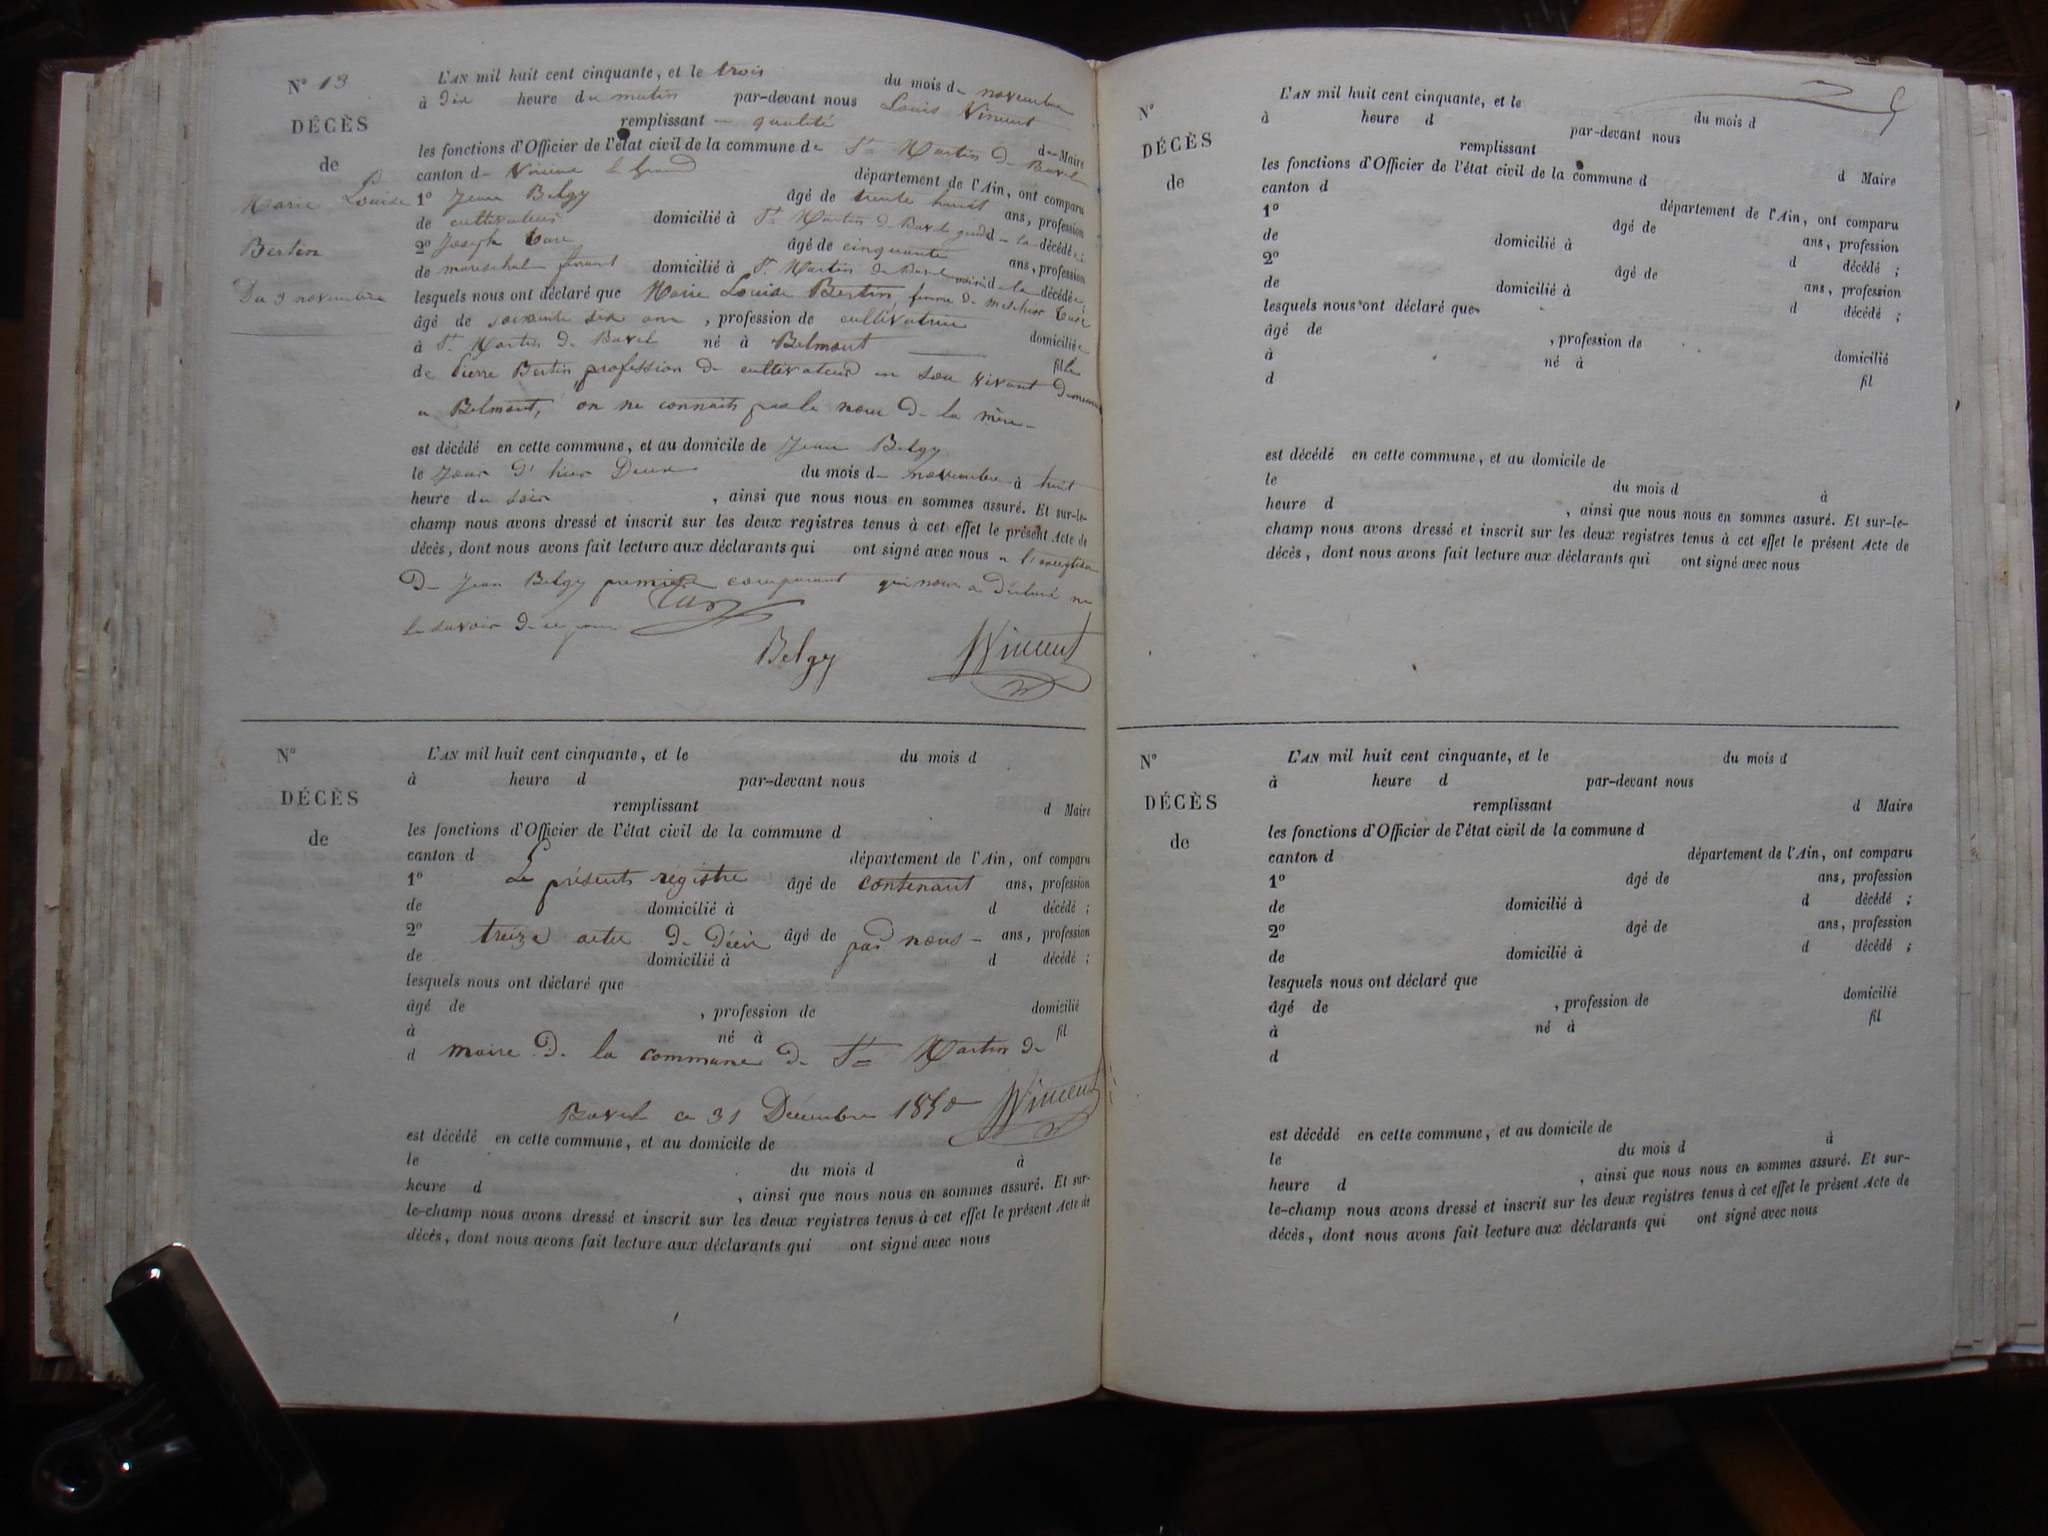 N° 13
DÉCÈS
de
Marie Louise
Bertin
Du 3 novembre
L'AN mil huit cent cinquante, et le trois du mois de novembre
à dix heure du matin par-devant nous Louis Vincent
remplissant en qualité de Maire
les fonctions d'Officier de l'état civil de la commune de St Martin de Bavel
canton de Virieu le Grand département de l'Ain, ont comparu
1° Jean Belgy âgé de trente huit ans, profession
de cultivateur domicilié à St Martin de Bavel d la décédée ;
2° Joseph âgé de cinquante ans, profession
de mareschal ferrant domicilié à St Martin de Bavel voisin d la décédée ;
lesquels nous ont déclaré que Marie Louise Bertin, femme de Melchior
âgé de soixante dix ans , profession de cultivatrice domiciliée
à St Martin de Bavel né à Belmont fille
de Pierre Bertin profession de cultivateur en son vivant
a Belmont, on ne connait pas le nom de la mère
est décédé en cette commune, et au domicile de Jean Belgy
le jour d'hier Deux du mois de novembre à huit
heure du soir , ainsi que nous nous en sommes assuré. Et sur-le-
champ nous avons dressé et inscrit sur les deux registres tenus à cet effet le présent Acte de
décès, dont nous avons fait lecture aux déclarants qui ont signé avec nous a l'exception
de Jean Belgy premier comparant qui nous a déclaré ne
le savoir de ce
Belgy Vincent
N°
DÉCÈS
de
L'AN mil huit cent cinquante, et le du mois d
à heure d par-devant nous
remplissant d Maire
les fonctions d'Officier de l'état civil de la commune d
canton d département de l'Ain, ont comparu
1° Le présent régistre âgé de contenant ans, profession
de domicilié à d décédé ;
2° treize actes de décès âgé de par nous ans, profession
de domicilié à d décédé ;
lesquels nous ont déclaré que
âgé de , profession de domicilié
à né à fil
d maire de la commune de St Martin de
Bavel ce 31 Décembre 1850 Vincent
est décédé en cette commune, et au domicile de
le du mois d à
heure d , ainsi que nous nous en sommes assuré. Et sur-
le-champ nous avons dressé et inscrit sur les deux registres tenus à cet effet le présent Acte de
décès, dont nous avons fait lecture aux déclarants qui ont signé avec nous
N°
DÉCÈS
de
L'AN mil huit cent cinquante, et le du mois d
à heure d par-devant nous
remplissant d Maire
les fonctions d'Officier de l'état civil de la commune d
canton d département de l'Ain, ont comparu
1° âgé de ans, profession
de domicilié à d décédé ;
2° âgé de ans, profession
de domicilié à d décédé ;
lesquels nous ont déclaré que
âgé de , profession de domicilié
à né à fil
d
est décédé en cette commune, et au domicile de
le du mois d à
heure d , ainsi que nous nous en sommes assuré. Et sur-le-
champ nous avons dressé et inscrit sur les deux registres tenus à cet effet le présent Acte de
décès, dont nous avons fait lecture aux déclarants qui ont signé avec nous
N°
DÉCÈS
de
L'AN mil huit cent cinquante, et le du mois d
à heure d par-devant nous
remplissant d Maire
les fonctions d'Officier de l'état civil de la commune d
canton d département de l'Ain, ont comparu
1° âgé de ans, profession
de domicilié à d décédé ;
2° âgé de ans, profession
de domicilié à d décédé ;
lesquels nous ont déclaré que
âgé de , profession de domicilié
à né à fil
d
est décédé en cette commune, et au domicile de
le du mois d à
heure d , ainsi que nous nous en sommes assuré. Et sur-
le-champ nous avons dressé et inscrit sur les deux registres tenus à cet effet le présent Acte de
décès, dont nous avons fait lecture aux déclarants qui ont signé avec nous